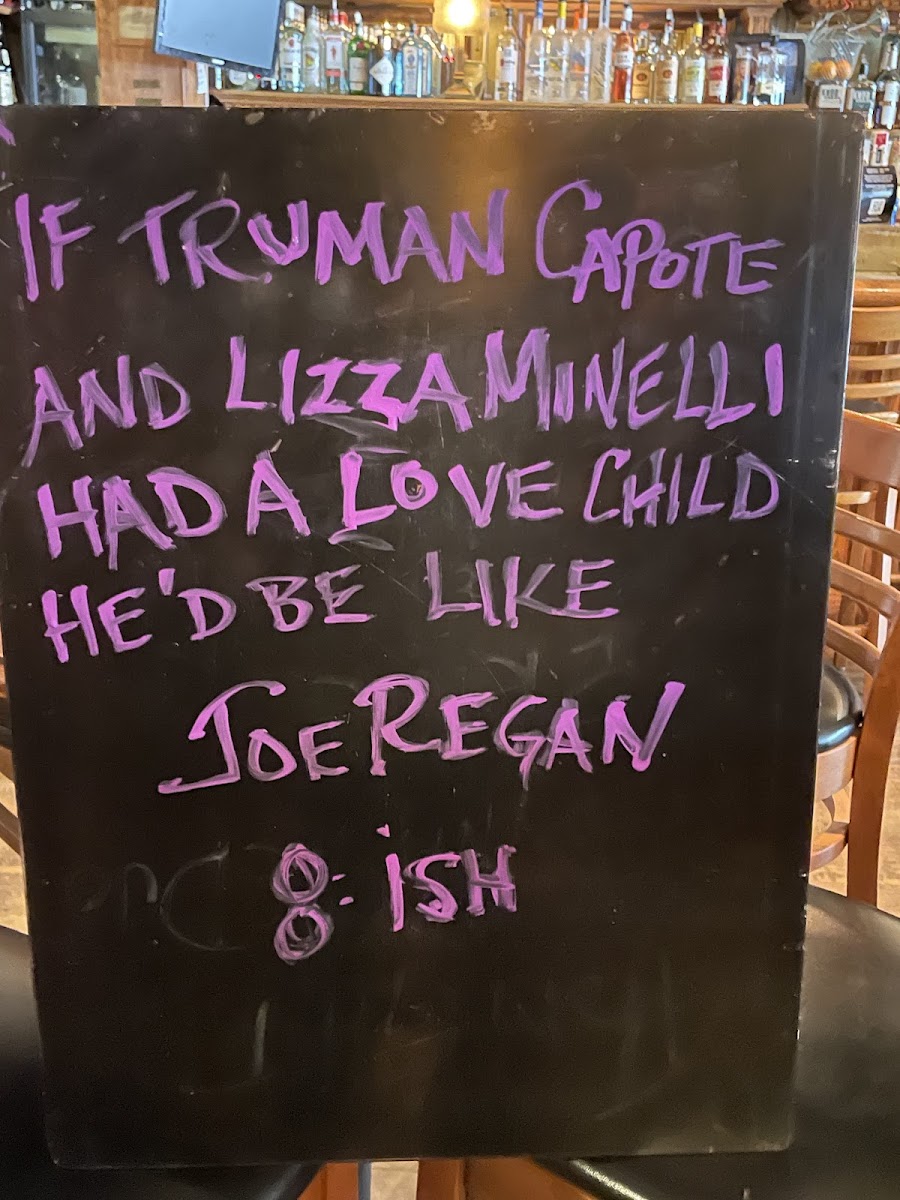 IF TRUMAN CAPOTE
AND LIZZA MINELLI
HAD A LOVE CHILD
HE'D BE LIKE
JOE REGAN
8:ISH